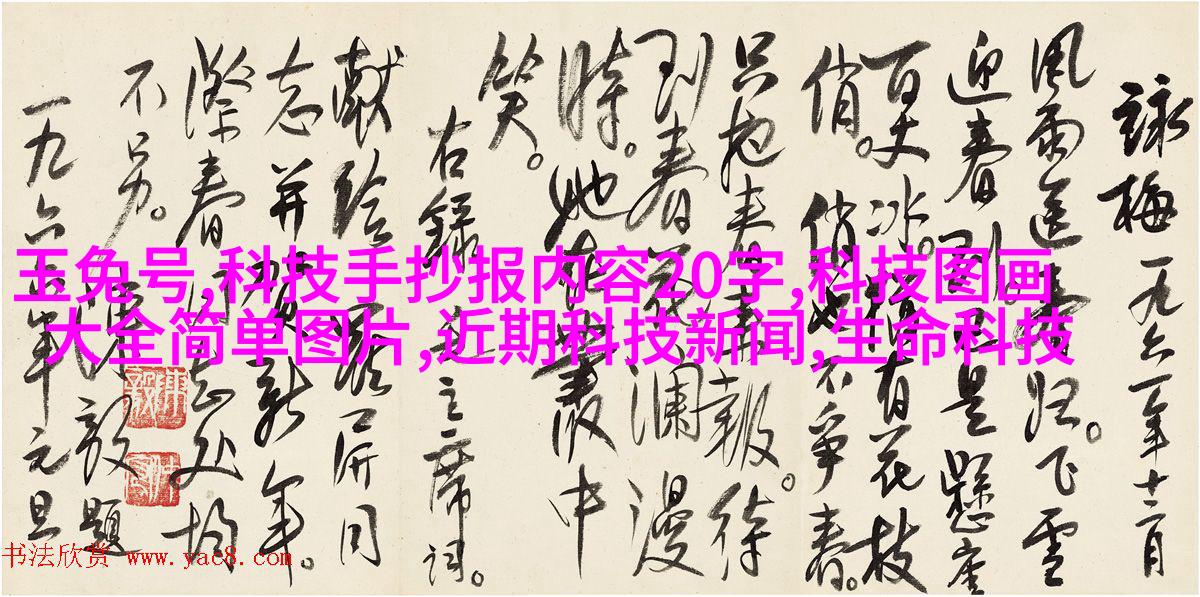 詠梅 一九六一年十二月
風雨送春归。飞雪
迎春到已是懸崖
百丈冰。猶有花枝
俏。俏也不争春。
只把春来報。待
到春花瀾漫
時。她在叢中
笑。
右錄毛主席词。
献给 同
志并賀新年。
春同志处均
不另。
陳毅 題
一九六二年元旦
玉兔号,科技手抄报内容20字,科技图画
大全简单图片,近期科技新闻,生命科技
书法欣赏 www.yac8.com